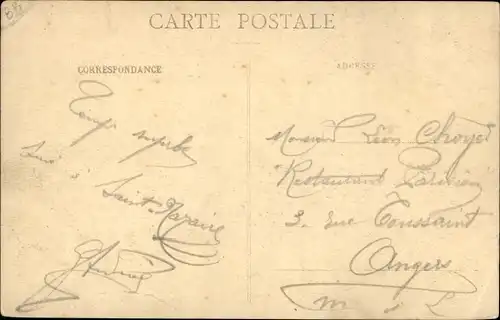 CARTE POSTALE
CORRESPONDANCE
ADRESSE
Temps superbe
à
Saint-Nazaire
Monsieur Léon
"Restaurant Parisien"
3, rue Toussaint
Angers
m & L